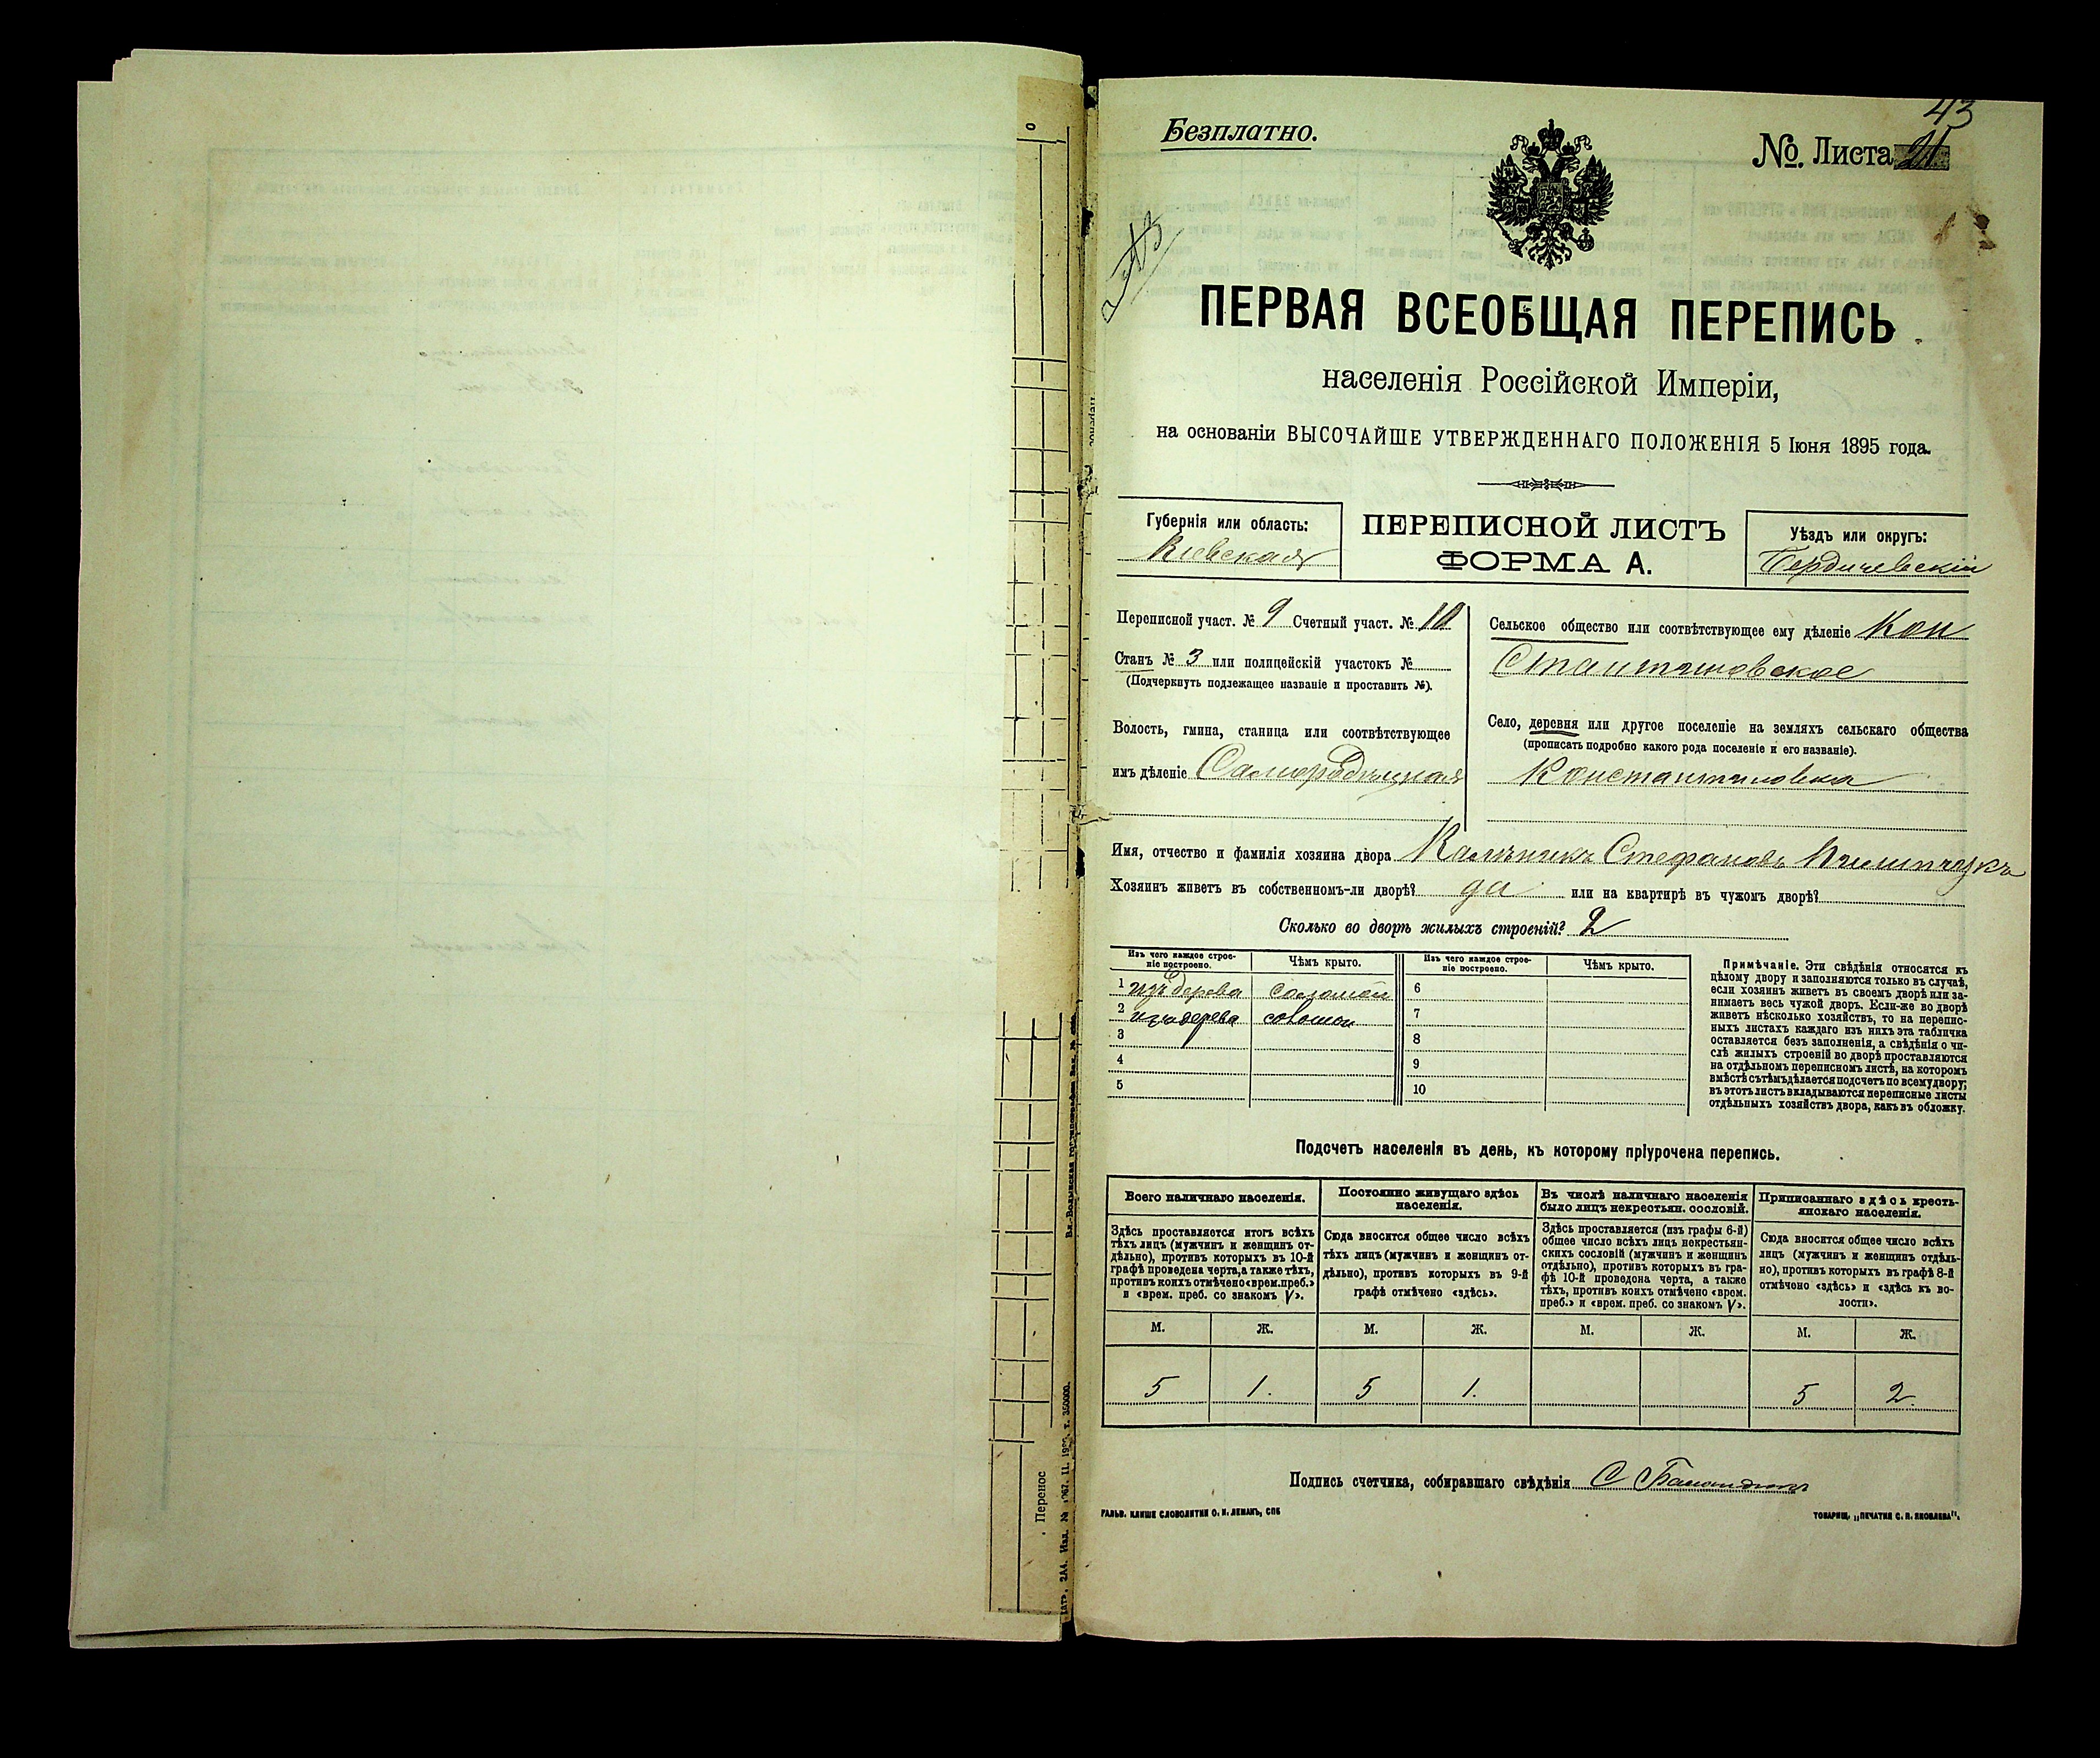 43
Безплатно.
№. Листа 21
ПЕРВАЯ ВСЕОБЩАЯ ПЕРЕПИСЬ
населенія Россійской Имперіи,
на основаніи ВЫСОЧАЙШЕ УТВЕРЖДЕННАГО ПОЛОЖЕНІЯ 5 Іюня 1895 года.
Губернія или область:
Кіевская
ПЕРЕПИСНОЙ ЛИСТЪ
ФОРМА А.
Уѣздъ или округъ:
Бердичевскій
Переписной участ. № 9 Счетный участ. № 10
Станъ № 3 или полицейскій участокъ №
(Подчеркнуть подлежащее названіе и проставить №).
Волость, гмина, станица или соотвѣтствующее
имъ дѣленіе Самородницкая
Сельское общество или соотвѣтствующее ему дѣленіе Кон
стантиновское
Село, деревня или другое поселеніе на земляхъ сельскаго общества
(прописать подробно какого рода поселеніе и его названіе).
Константиновка
Имя, отчество и фамилія хозяина двора Калѣникъ Стефановъ
Хозяинъ живетъ въ собственномъ-ли дворѣ? да или на квартирѣ въ чужомъ дворѣ?
Сколько во дворѣ жилыхъ строеній? 2
Изъ чего каждое строе-
ніе построено.
Чѣмъ крыто.
1 изъ дерева соломой
2 изъ дерева соломой
3
4
5
Изъ чего каждое строе-
ніе построено.
Чѣмъ крыто.
6
7
8
9
10
Примѣчаніе. Эти свѣдѣнія относятся къ
цѣлому двору и заполняются только въ случаѣ,
если хозяинъ живетъ въ своемъ дворѣ или за-
нимаетъ весь чужой дворъ. Если-же во дворѣ
живетъ нѣсколько хозяйствъ, то на перепис-
ныхъ листахъ каждаго изъ нихъ эта табличка
оставляется безъ заполненія, а свѣдѣнія о чи-
слѣ жилыхъ строеній во дворѣ проставляются
на отдѣльномъ переписномъ листѣ, на которомъ
вмѣстѣ съ тѣмъ дѣлается подсчетъ по всему двору;
въ этотъ листъ вкладываются переписные листы
отдѣльныхъ хозяйствъ двора, какъ въ обложку.
Подсчетъ населенія въ день, къ которому пріурочена перепись.
Всего наличнаго населенія.
Здѣсь проставляется итогъ всѣхъ
тѣхъ лицъ (мужчинъ и женщинъ от-
дѣльно), противъ которыхъ въ 10-й
графѣ проведена черта, а также тѣхъ,
противъ коихъ отмѣчено «врем. преб.»
и «врем. преб. со знакомъ V».
Постоянно живущаго здѣсь
населенія.
Сюда вносится общее число всѣхъ
тѣхъ лицъ (мужчинъ и женщинъ от-
дѣльно), противъ которыхъ въ 9-й
графѣ отмѣчено «здѣсь».
Въ числѣ наличнаго населенія
было лицъ некрестьян. сословій.
Здѣсь проставляется (изъ графы 6-й)
общее число всѣхъ лицъ некрестьян-
скихъ сословій (мужчинъ и женщинъ
отдѣльно), противъ которыхъ въ гра-
фѣ 10-й проведена черта, а также
тѣхъ, противъ коихъ отмѣчено «врем.
преб.» и «врем. преб. со знакомъ V».
Приписаннаго здѣсь кресть-
янскаго населенія.
Сюда вносится общее число всѣхъ
лицъ (мужчинъ и женщинъ отдѣль-
но), противъ которыхъ въ графѣ 8-й
отмѣчено «здѣсь» и «здѣсь къ во-
лости».
М. Ж. М. Ж. М. Ж. М. Ж.
5 1. 5 1. 5 2.
Подпись счетчика, собиравшаго свѣдѣнія С
ГАЛЬВ. КЛИШЕ СЛОВОЛИТНИ О. И. ЛЕМАНЪ, СПБ
ТОВАРИЩ. „ПЕЧАТНЯ С. П. ЯКОВЛЕВА“.
Перенос